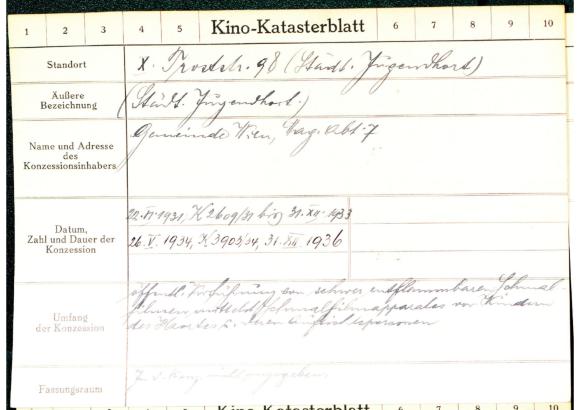 1 2 3 4 5 Kino-Katasterblatt 6 7 8 9 10
Standort X. Troststr. 98 (Städt. Jugendhort)
Äußere
Bezeichnung (Städt. Jugendhort.)
Name und Adresse
des
Konzessionsinhabers
Gemeinde Wien, Mag. Abt. 7
Datum,
Zahl und Dauer der
Konzession
22. VI. 1931, K 2609/31 bis 31. XII. 1933
26. V. 1934, K 3903/34, 31. XII. 1936
Umfang
der Konzession
öffentl. Vorführung von schwer entflammbaren Schmal-
filmen mittels Schmalfilmapparates vor Kindern
des Hortes u. deren
Fassungsraum
nicht angegeben.
Kino-Katasterblatt 6 7 8 9 10